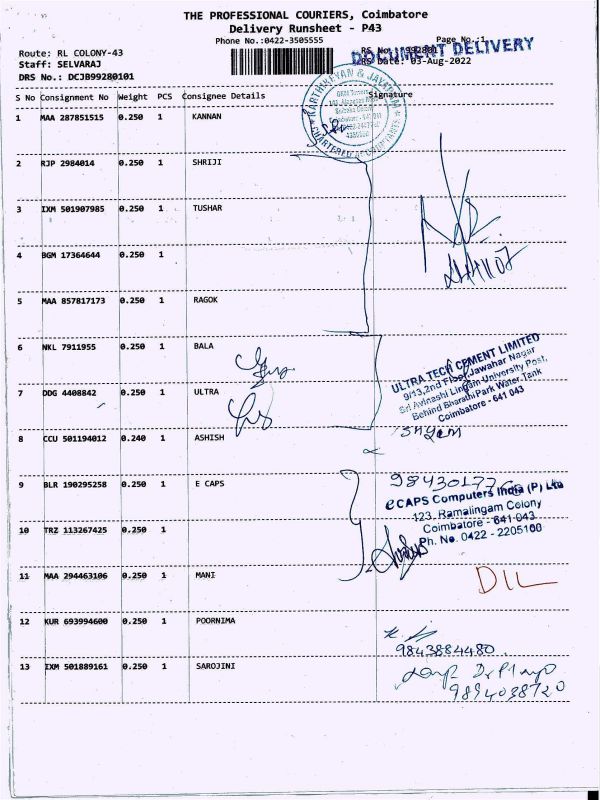 THE PROFESSIONAL COURIERS, Coimbatore
Delivery Runsheet - P43
Phone No.:0422-3505555
Page No.:1
Route: RL COLONY-43
Staff: SELVARAJ
DRS No.: DCJB99280101
DOCUMENT DELIVERY
DRS Date: 03-Aug-2022
S No Consignment No Weight PCS Consignee Details Signature
KARTHIKEYAN & JAYARAM
CHARTERED ACCOUNTANTS
1 MAA 287851515 0.250 1 KANNAN
2 RJP 2984014 0.250 1 SHRIJI
3 IXM 501907985 0.250 1 TUSHAR
4 BGM 17364644 0.250 1
5 MAA 857817173 0.250 1 RAGOK
6 NKL 7911955 0.250 1 BALA
ULTRA TECH CEMENT LIMITED
9/13, 2nd Floor, Jawahar Nagar
Sri Avinashi Lingam University Post,
Behind Bharathi Park Water Tank
Coimbatore - 641 043
7 DDG 4408842 0.250 1 ULTRA
8 CCU 501194012 0.240 1 ASHISH
Shyam
9 BLR 190295258 0.250 1 E CAPS
eCAPS Computers India (P) Ltd
123, Ramalingam Colony
Coimbatore - 641 043
Ph. No. 0422 - 2205100
10 TRZ 113267425 0.250 1
11 MAA 294463106 0.250 1 MANI
DIL
12 KUR 693994600 0.250 1 POORNIMA
9843884480
13 IXM 501889161 0.250 1 SAROJINI
9894038720